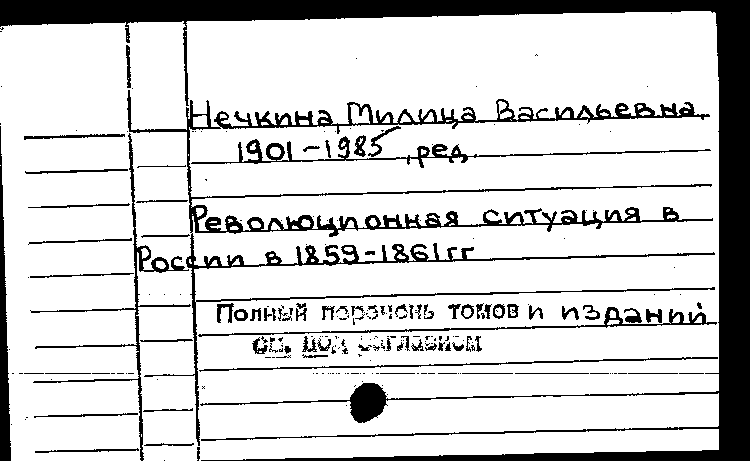 Нечкина, Милица Васильевна,
1901-1985 , ред.
Революционная ситуация в
России в 1859-1861гг
Полный перечень томов и изданий
см. под заглавием